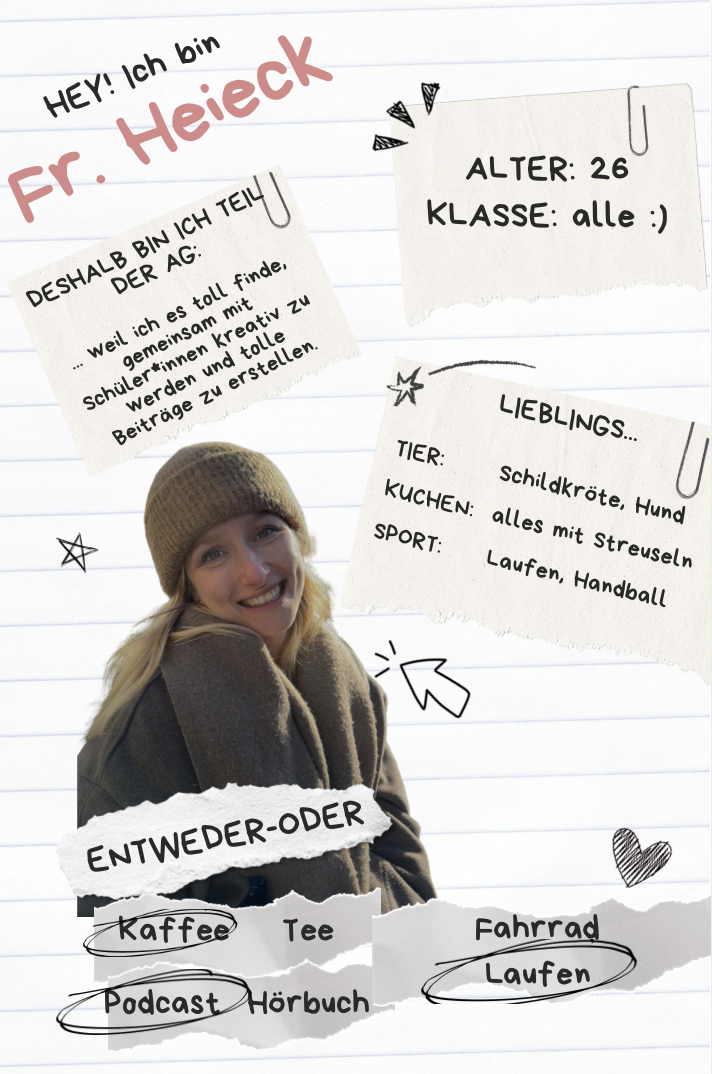 HEY! Ich bin
Fr. Heieck
ALTER: 26
KLASSE: alle :)
DESHALB BIN ICH TEIL
DER AG:
... weil ich es toll finde,
gemeinsam mit
Schüler*innen kreativ zu
werden und tolle
Beiträge zu erstellen.
LIEBLINGS...
TIER: Schildkröte, Hund
KUCHEN: alles mit Streuseln
SPORT: Laufen, Handball
ENTWEDER-ODER
Kaffee Tee
Podcast Hörbuch
Fahrrad
Laufen